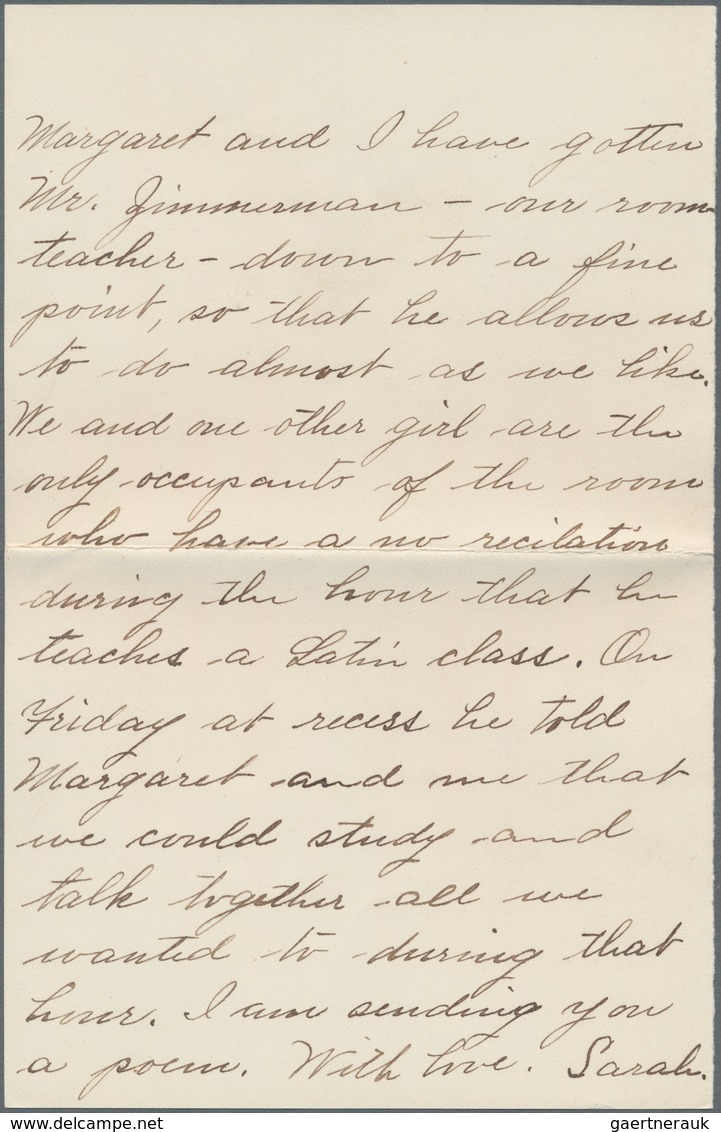 Margaret and I have gotten
Mr. Zimmerman – our room
teacher – down to a fine
point, so that he allows us
to do almost as we like.
We and one other girl are the
only occupants of the room
who have a no recitation
during the hour that he
teaches a Latin class. On
Friday at recess he told
Margaret and me that
we could study and
talk together all we
wanted to during that
hour. I am sending you
a poem. With love. Sarah.
www.delcampe.net
gaertnerauk